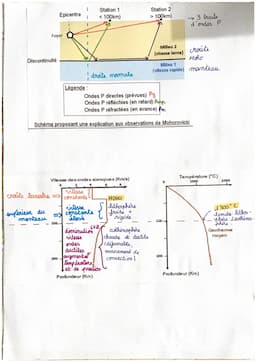 Epicentre
Station 1
(< 100km)
Station 2
> 100km)
→ 3 trains
d'ondes P
Foyer
Milieu 2
(vitesse lente)
croûte
Moho
Discontinuité
Milieu 1
(vitesse rapide)
manteau
droite normale
Légende :
Ondes P directes (prévues) Pg
Ondes P réfléchies (en retard)
Ondes P réfractées (en avance)
Schéma proposant une explication aux observations de Mohorovicic
Vitesse des ondes sismiques (Km/s)
Température (°C)
croûte terrestre ⇒
vitesse
constante
MOHO
supérieur du
manteau ⇒
vitesse
constante
élevée
lithosphère
froide et
rigide
1300°C
limite litho-
Géotherme
moyen
LVZ
diminution
vitesse
ondes
ductiles
augmentat°
température
et de pression
asthénosphère
chaude et ductile
(déformable,
mouvement de
convection)
Profondeur (Km)
Profondeur (km)